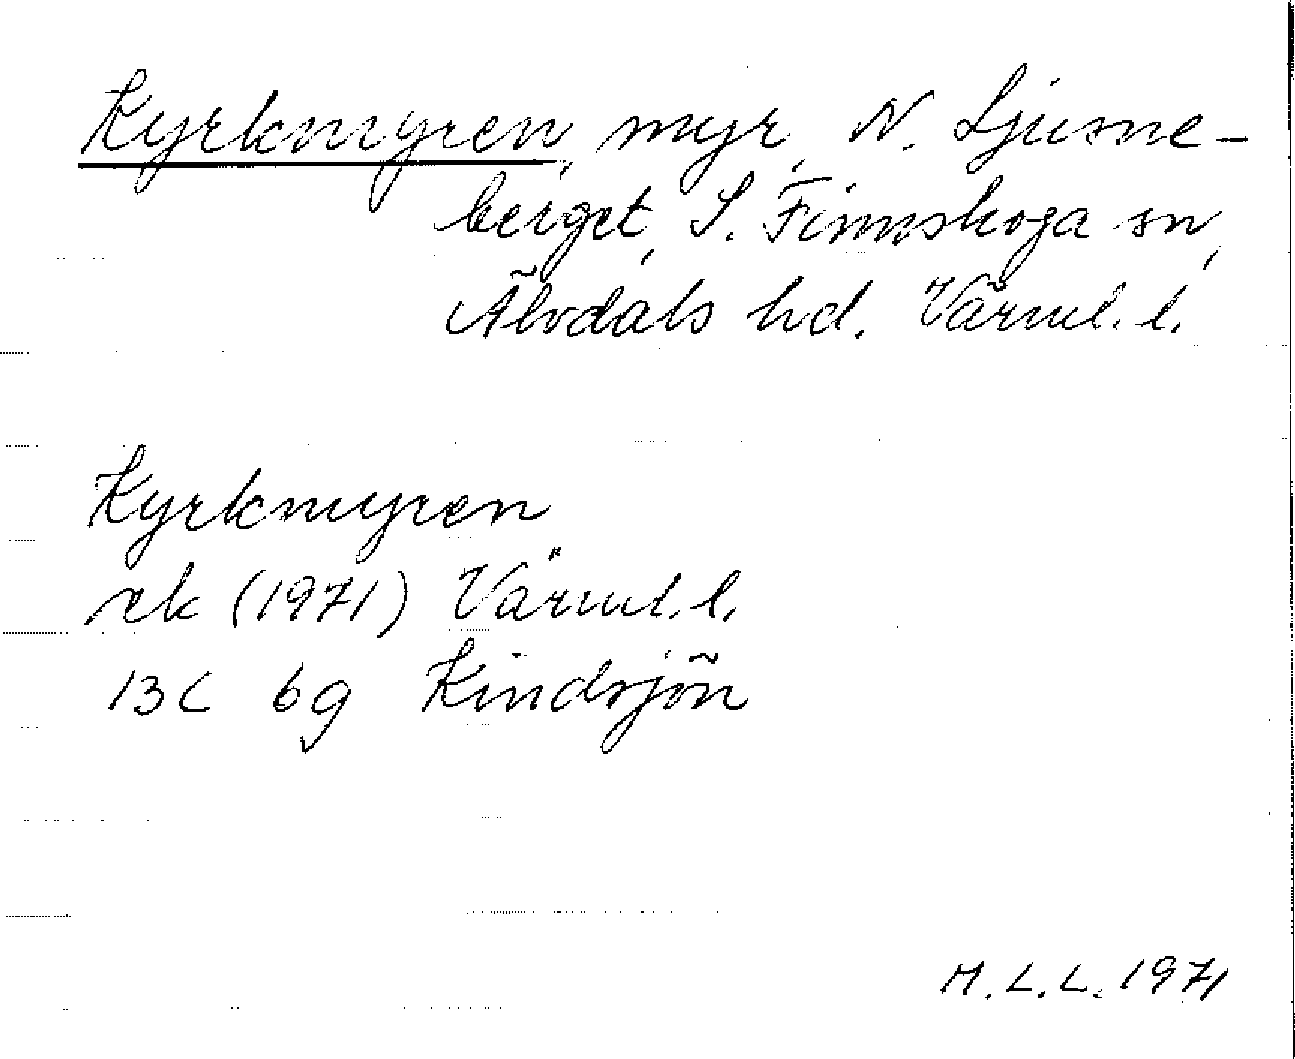 Kyrkmyren, myr, N. Ljusne-
berget, S. Finnskoga sn,
Älvdals hd. Värml. l.
Kyrkmyren
ek (1971) Värml. l.
13C 6g Kindsjön
M.L.L. 1971